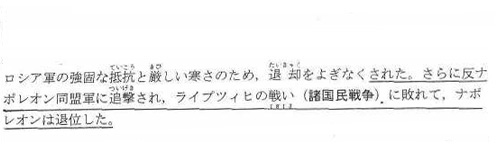 ロシア軍の強固な抵抗と厳しい寒さのため，退却をよぎなくされた。さらに反ナ
ポレオン同盟軍に追撃され，ライプツィヒの戦い（諸国民戦争）に敗れて，ナポ
レオンは退位した。